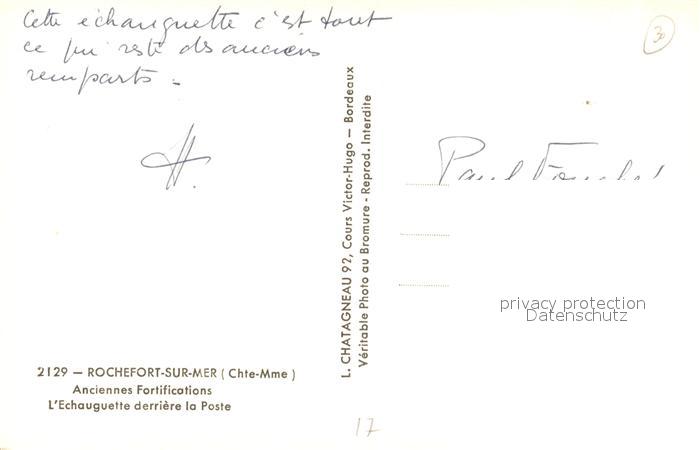 Cette échauguette c'est tout
ce qui reste des anciens
remparts.
H.
30
Paul
L. CHATAGNEAU 92, Cours Victor-Hugo — Bordeaux
Véritable Photo au Bromure - Reprod. Interdite
privacy protection
Datenschutz
2129 — ROCHEFORT-SUR-MER ( Chte-Mme )
Anciennes Fortifications
L'Echauguette derrière la Poste
17